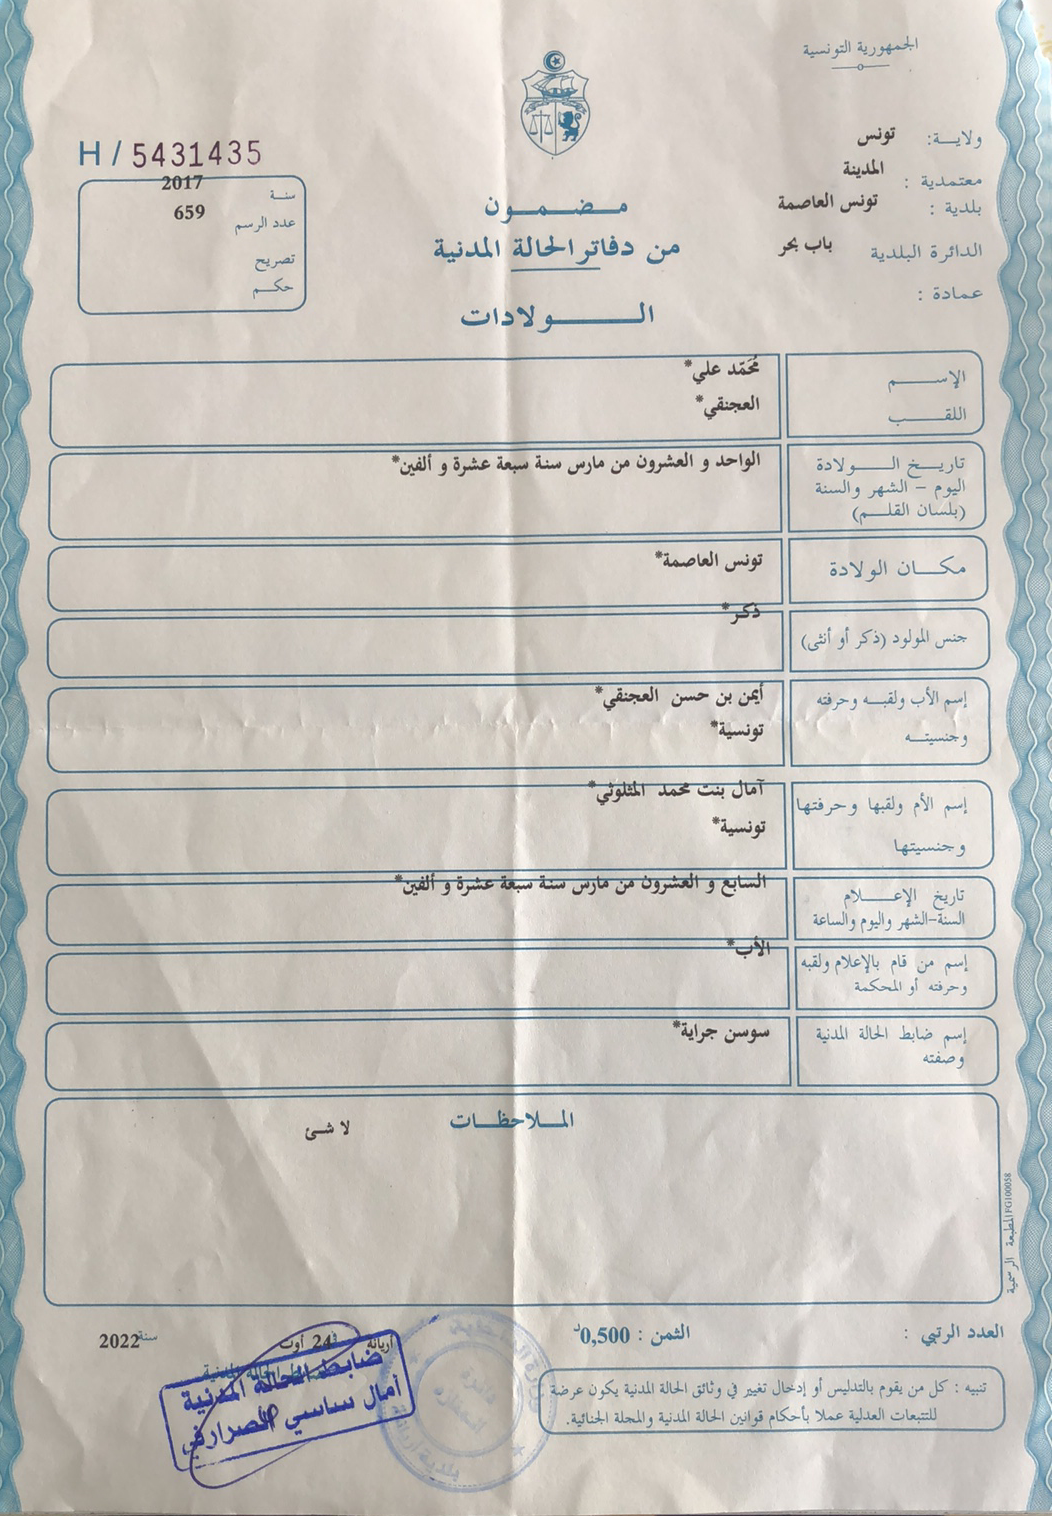 الجمهورية التونسية
ولاية: تونس
معتمدية : المدينة
بلدية : تونس العاصمة
الدائرة البلدية باب بحر
عمادة :
H / 5431435
سنة 2017
عدد الرسم 659
تصريح
حكم
مضمون
من دفاتر الحالة المدنية
الولادات
الإسم محمّد علي*
اللقب العجنقي*
تاريخ الولادة الواحد و العشرون من مارس سنة سبعة عشرة و ألفين*
اليوم - الشهر والسنة
(بلسان القلم)
مكان الولادة تونس العاصمة*
جنس المولود (ذكر أو أنثى) ذكر*
إسم الأب ولقبه وحرفته أيمن بن حسن العجنقي*
وجنسيته تونسية*
إسم الأم ولقبها وحرفتها آمال بنت محمد المثلوثي*
وجنسيتها تونسية*
تاريخ الإعلام السابع و العشرون من مارس سنة سبعة عشرة و ألفين*
السنة-الشهر واليوم والساعة
إسم من قام بالإعلام ولقبه الأب*
وحرفته أو المحكمة
إسم ضابط الحالة المدنية سوسن جراية*
وصفته
الملاحظات
لا شئ
المطبعة الرسمية FG100058
العدد الرتبي :
الثمن : 0,500د
اريانة في 24 أوت سنة 2022
ضابط الحالة المدنية
ضابط الحالة المدنية
أمال ساسي الصرارفي
تنبيه : كل من يقوم بالتدليس أو إدخال تغيير في وثائق الحالة المدنية يكون عرضة
للتتبعات العدلية عملا بأحكام قوانين الحالة المدنية والمجلة الجنائية.